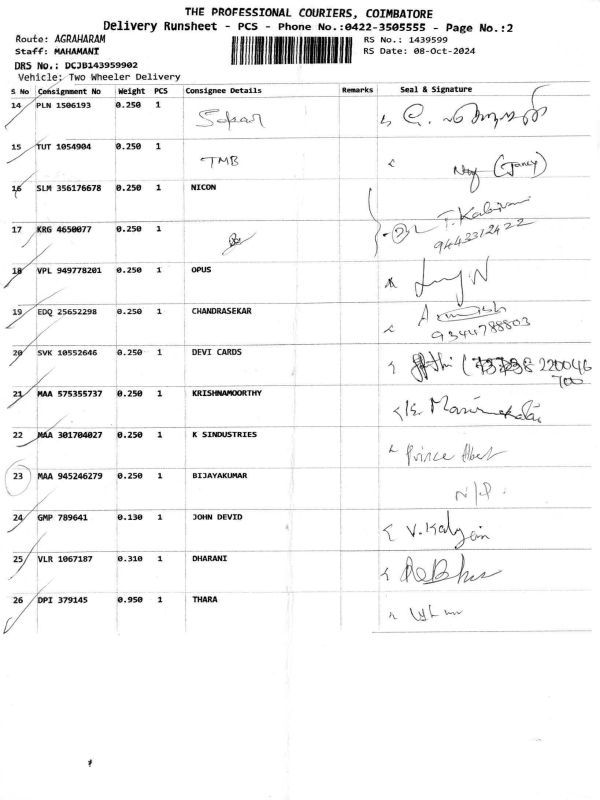 THE PROFESSIONAL COURIERS, COIMBATORE
Delivery Runsheet - PCS - Phone No.:0422-3505555 - Page No.:2
Route: AGRAHARAM RS No.: 1439599
Staff: MAHAMANI RS Date: 08-Oct-2024
DRS No.: DCJB143959902
Vehicle: Two Wheeler Delivery
S No Consignment No Weight PCS Consignee Details Remarks Seal & Signature
14 PLN 1506193 0.250 1
15 TUT 1054904 0.250 1 TMB
16 SLM 356176678 0.250 1 NICON
17 KRG 4650077 0.250 1 9443312422
18 VPL 949778201 0.250 1 OPUS
19 EDQ 25652298 0.250 1 CHANDRASEKAR
9344788803
20 SVK 10552646 0.250 1 DEVI CARDS
21 MAA 575355737 0.250 1 KRISHNAMOORTHY
22 MAA 301704027 0.250 1 K SINDUSTRIES Prince Albert
23 MAA 945246279 0.250 1 BIJAYAKUMAR N/P.
24 GMP 789641 0.130 1 JOHN DEVID
25 VLR 1067187 0.310 1 DHARANI
26 DPI 379145 0.950 1 THARA